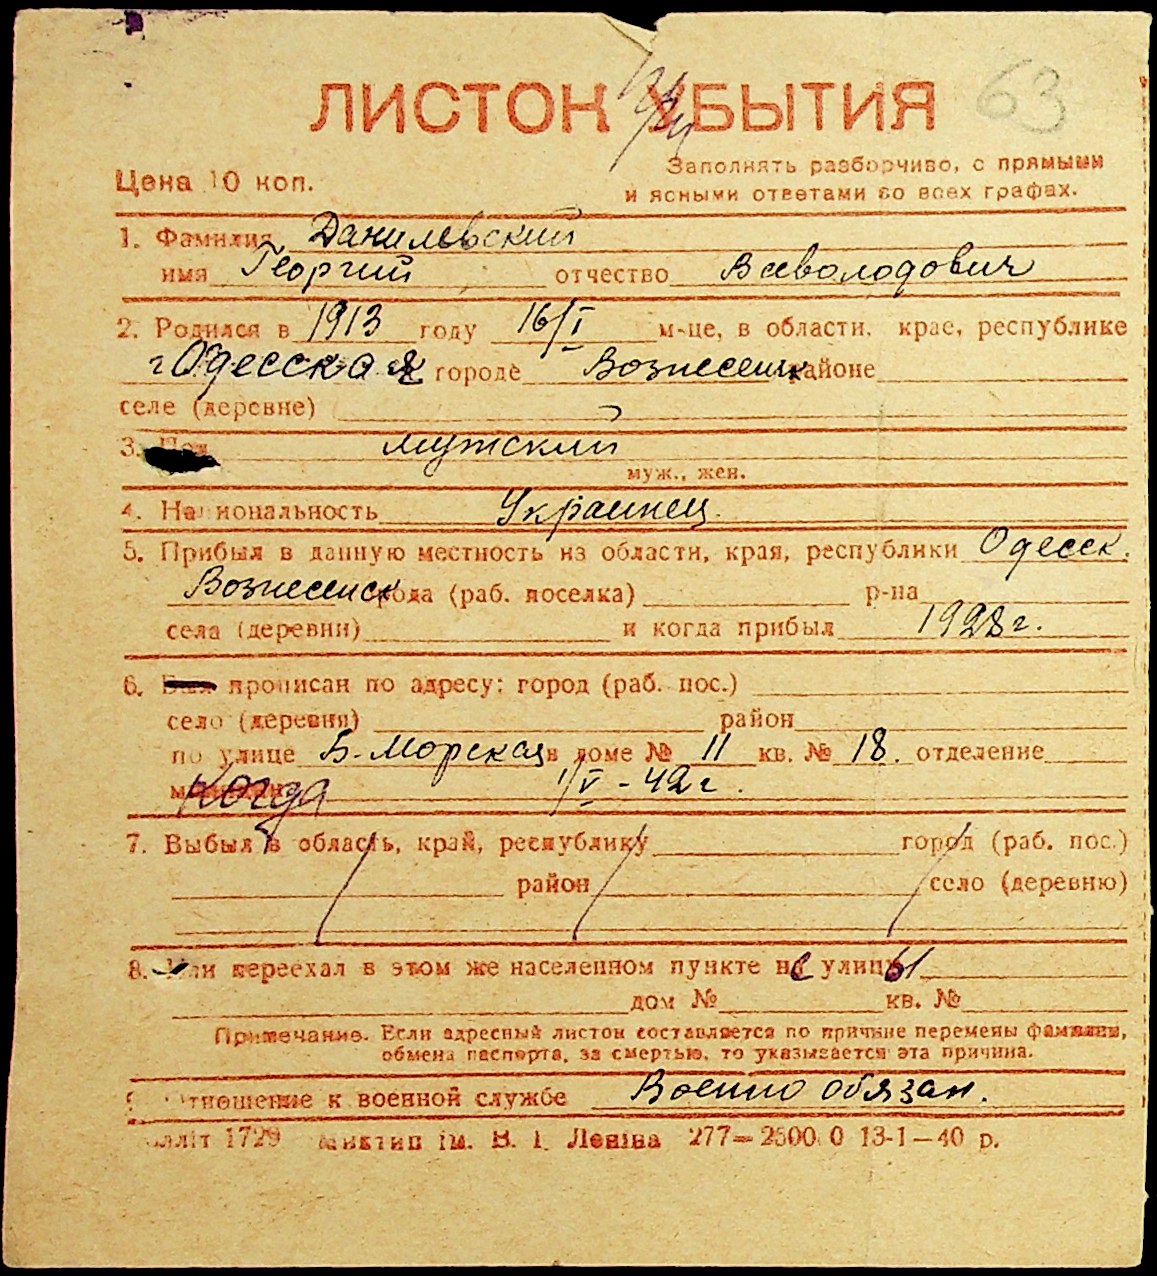 63
ЛИСТОК УБЫТИЯ
Цена 10 коп.
Заполнять разборчиво, с прямыми
и ясными ответами во всех графах.
1. Фамилия Данилевский
имя Георгий отчество Всеволодович
2. Родился в 1913 году 16/I м-це, в области, крае, республике
г Одесская городе Вознесенск районе
селе (деревне)
3. Пол мужский
муж., жен.
4. Национальность Украинец.
5. Прибыл в данную местность из области, края, республики Одесск.
Вознесенск города (раб. поселка) р-на
села (деревни) и когда прибыл 1928 г.
6. Был прописан по адресу: город (раб. пос.)
село (деревня) район
по улице Б-Морская в доме № 11 кв. № 18. отделение
Когда 1/V - 42 г.
7. Выбыл в область, край, республику город (раб. пос.)
район село (деревню)
8. Или переехал в этом же населенном пункте на улицу
дом № кв. №
Примечание. Если адресный листок составляется по причине перемены фамилии,
обмена паспорта, за смертью, то указывается эта причина.
Отношение к военной службе Военно обязан.
1729 ім. В. І. Леніна 277— 13-1—40 р.